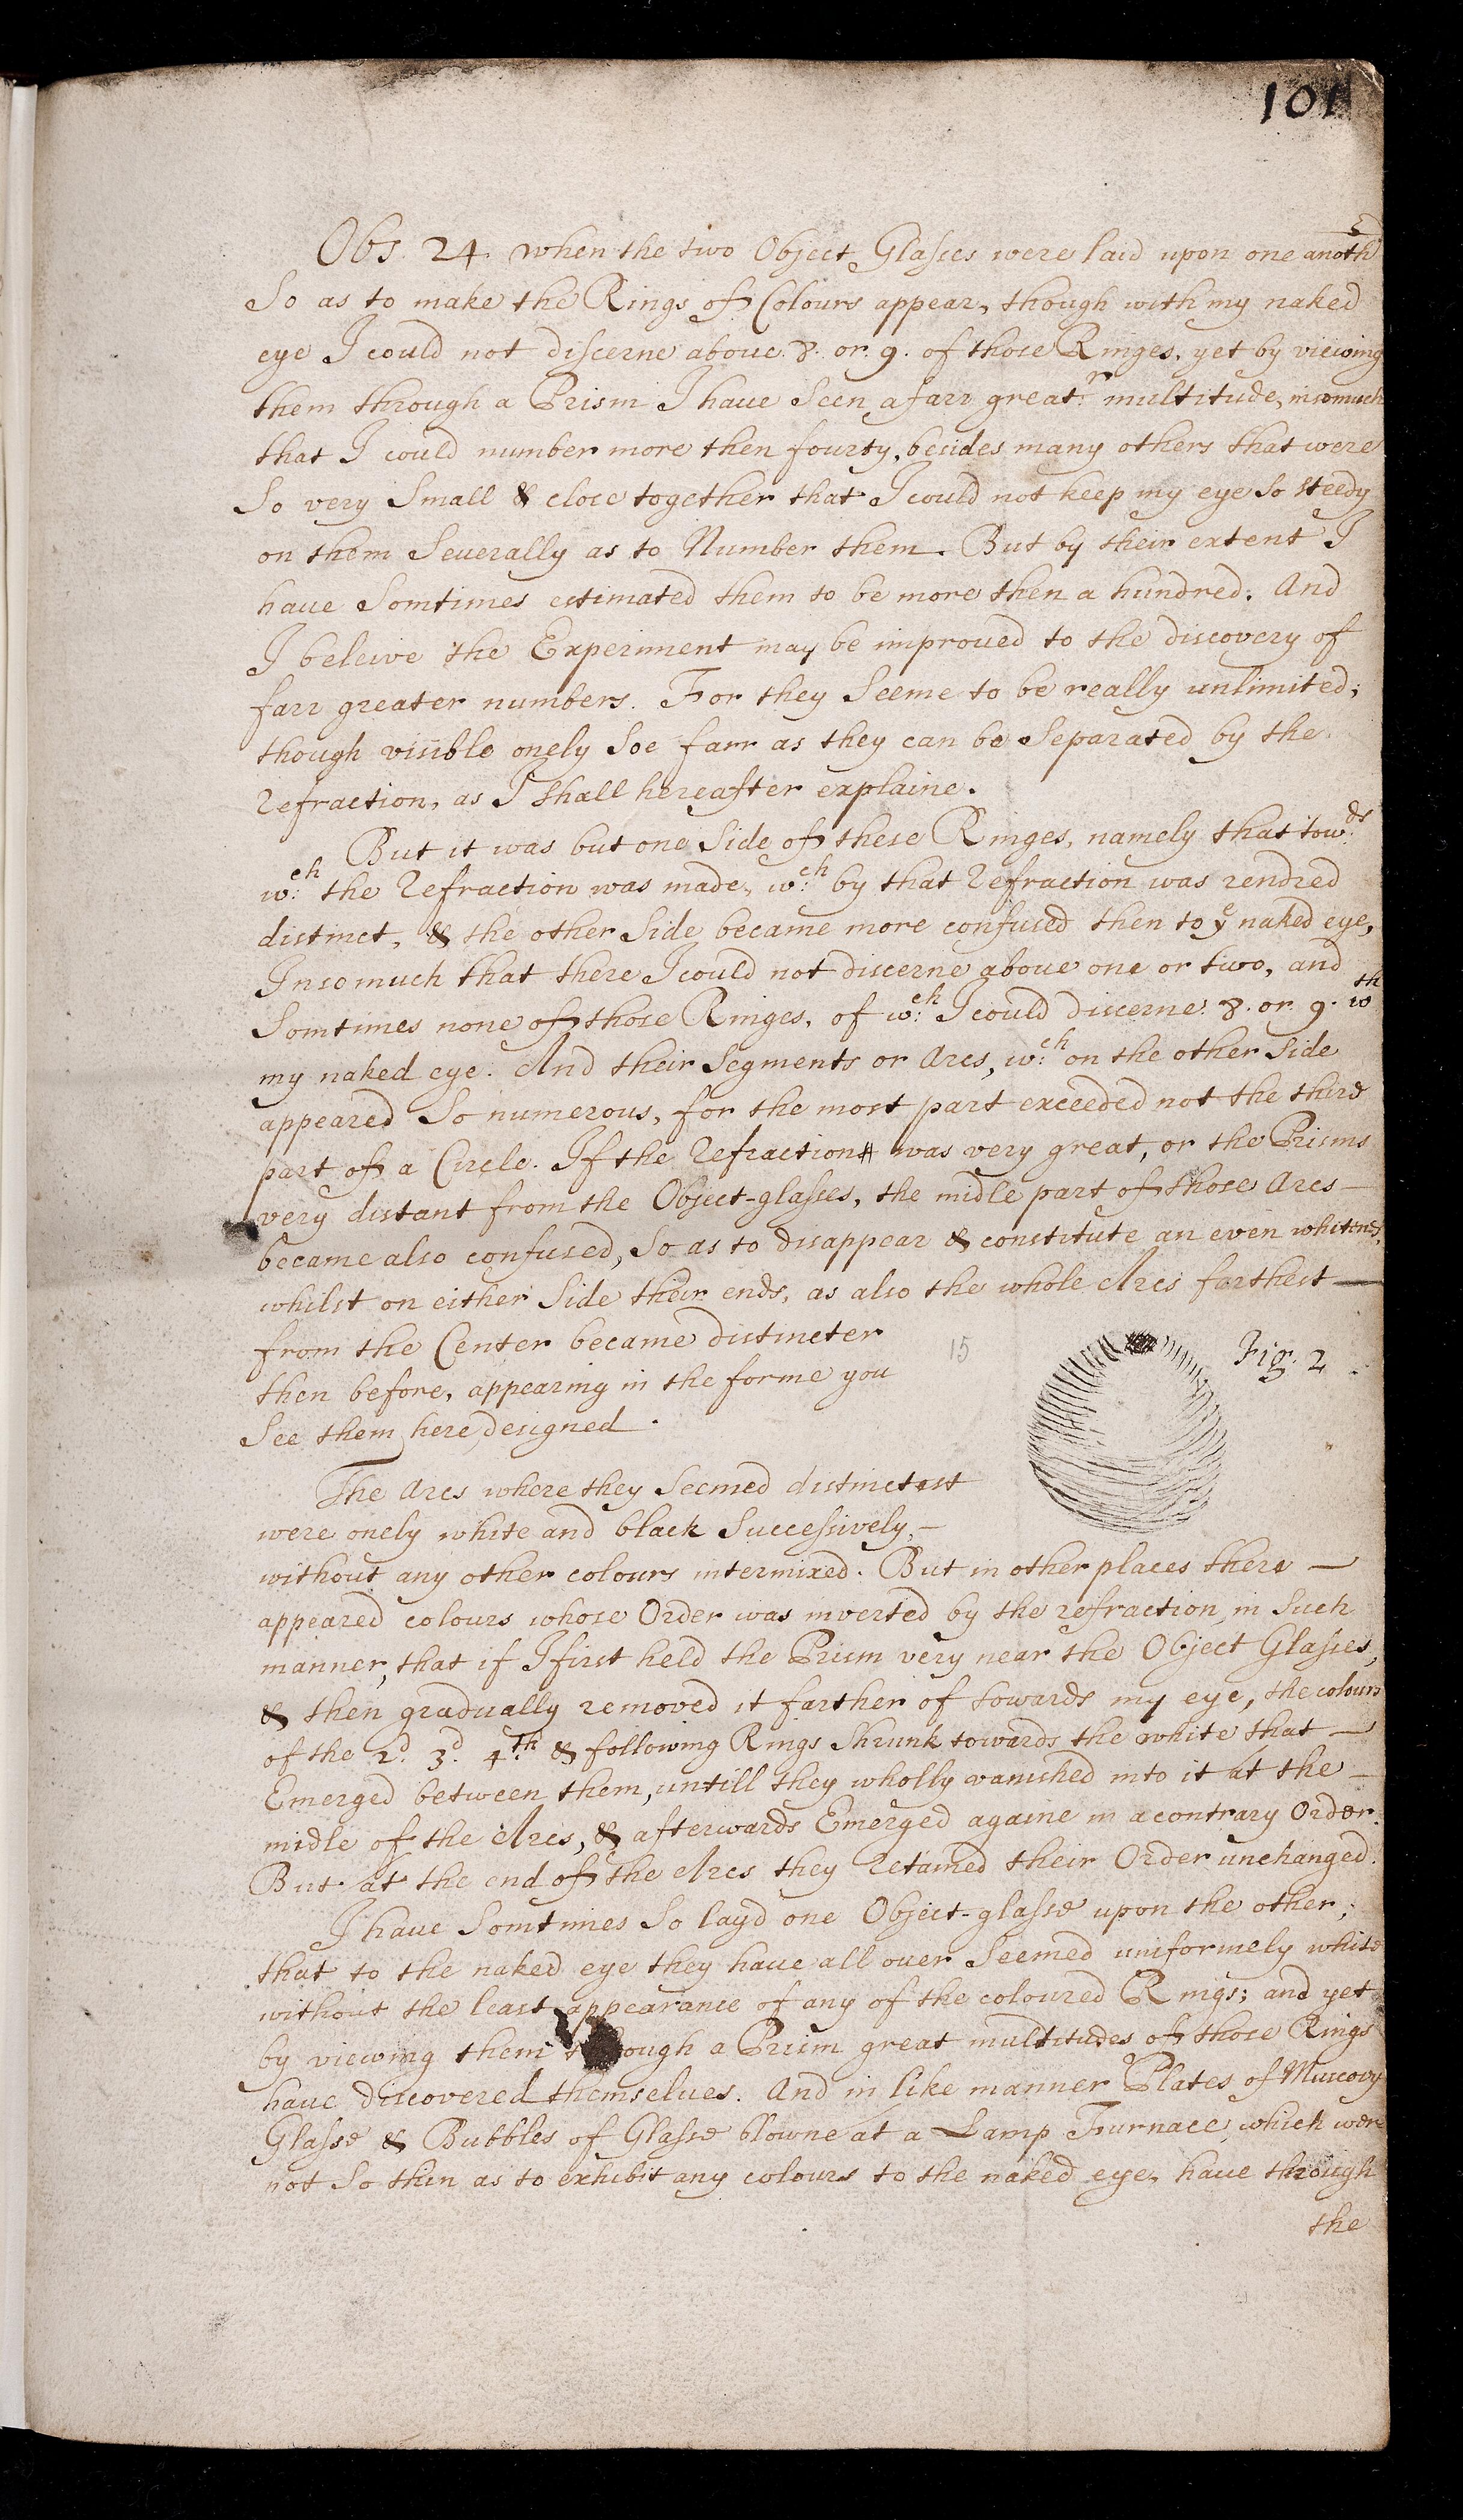 101
Obs. 24. when the two Object Glasses were laid upon one anoth^r
So as to make the Rings of Colours appear, though with my naked
eye I could not discerne aboue. 8. or. 9. of those Ringes, yet by viewing
them through a Prism I haue Seen a farr great.^r multitude, insomuch
that I could number more then fourty, besides many others that were
So very Small & close together that I could not keep my eye so steedy
on them Seuerally as to Number them. But by their extent I
haue Somtimes estimated them to be more then a hundred. And
I beleive the Experiment may be improued to the discovery of
farr greater numbers. For they Seeme to be really unlimited;
though visible onely Soe farr as they can be Separated by the
Refraction, as I shall hereafter explaine.
But it was but one Side of these Ringes, namely that tow^ds
w:^ch the Refraction was made, w:^ch by that Refraction was rendred
distinct, & the other Side became more confused then to y^e naked eye,
Insomuch that there I could not discerne aboue one or two, and
Somtimes none of those Ringes, of w:^ch I could discerne. 8. or. 9. w^th
my naked eye. And their Segments or Arcs, w:^ch on the other Side
appeared So numerous, for the most part exceeded not the third
part of a Circle. If the Refraction was very great, or the Prisms
very distant from the Object-glasses, the midle part of those Arcs —
became also confused, So as to disappear & constitute an even whitenes,
whilst on either Side their ends, as also the whole Arcs farthest —
from the Center became distincter
15
Fig. 2
then before, appearing in the forme you
See them here designed.
The Arcs where they Seemed distinctest
were onely white and black Successively, —
without any other colours intermixed. But in other places there —
appeared colours whose Order was inverted by the refraction in Such
manner, that if I first held the Prism very near the Object Glasses,
& then gradually removed it farther of towards my eye, the colours
of the 2.^d 3.^d 4.^th & following Rings Shrunk towards the white that —
Emerged between them, untill they wholly vanished into it at the —
midle of the Arcs, & afterwards Emerged againe in a contrary Order.
But at the end of the Arcs they retained their Order unchanged.
I haue Somtimes So layd one Object-glasse upon the other,
that to the naked eye they haue all ouer Seemed uniformely white
without the least appearance of any of the coloured Rings; and yet
by viewing them through a Prism great multitudes of those Rings
haue discovered themselues. And in like manner Plates of Muscovy
Glasse & Bubbles of Glasse blowne at a Lamp Furnace which were
not So thin as to exhibit any colours to the naked eye, haue through
the